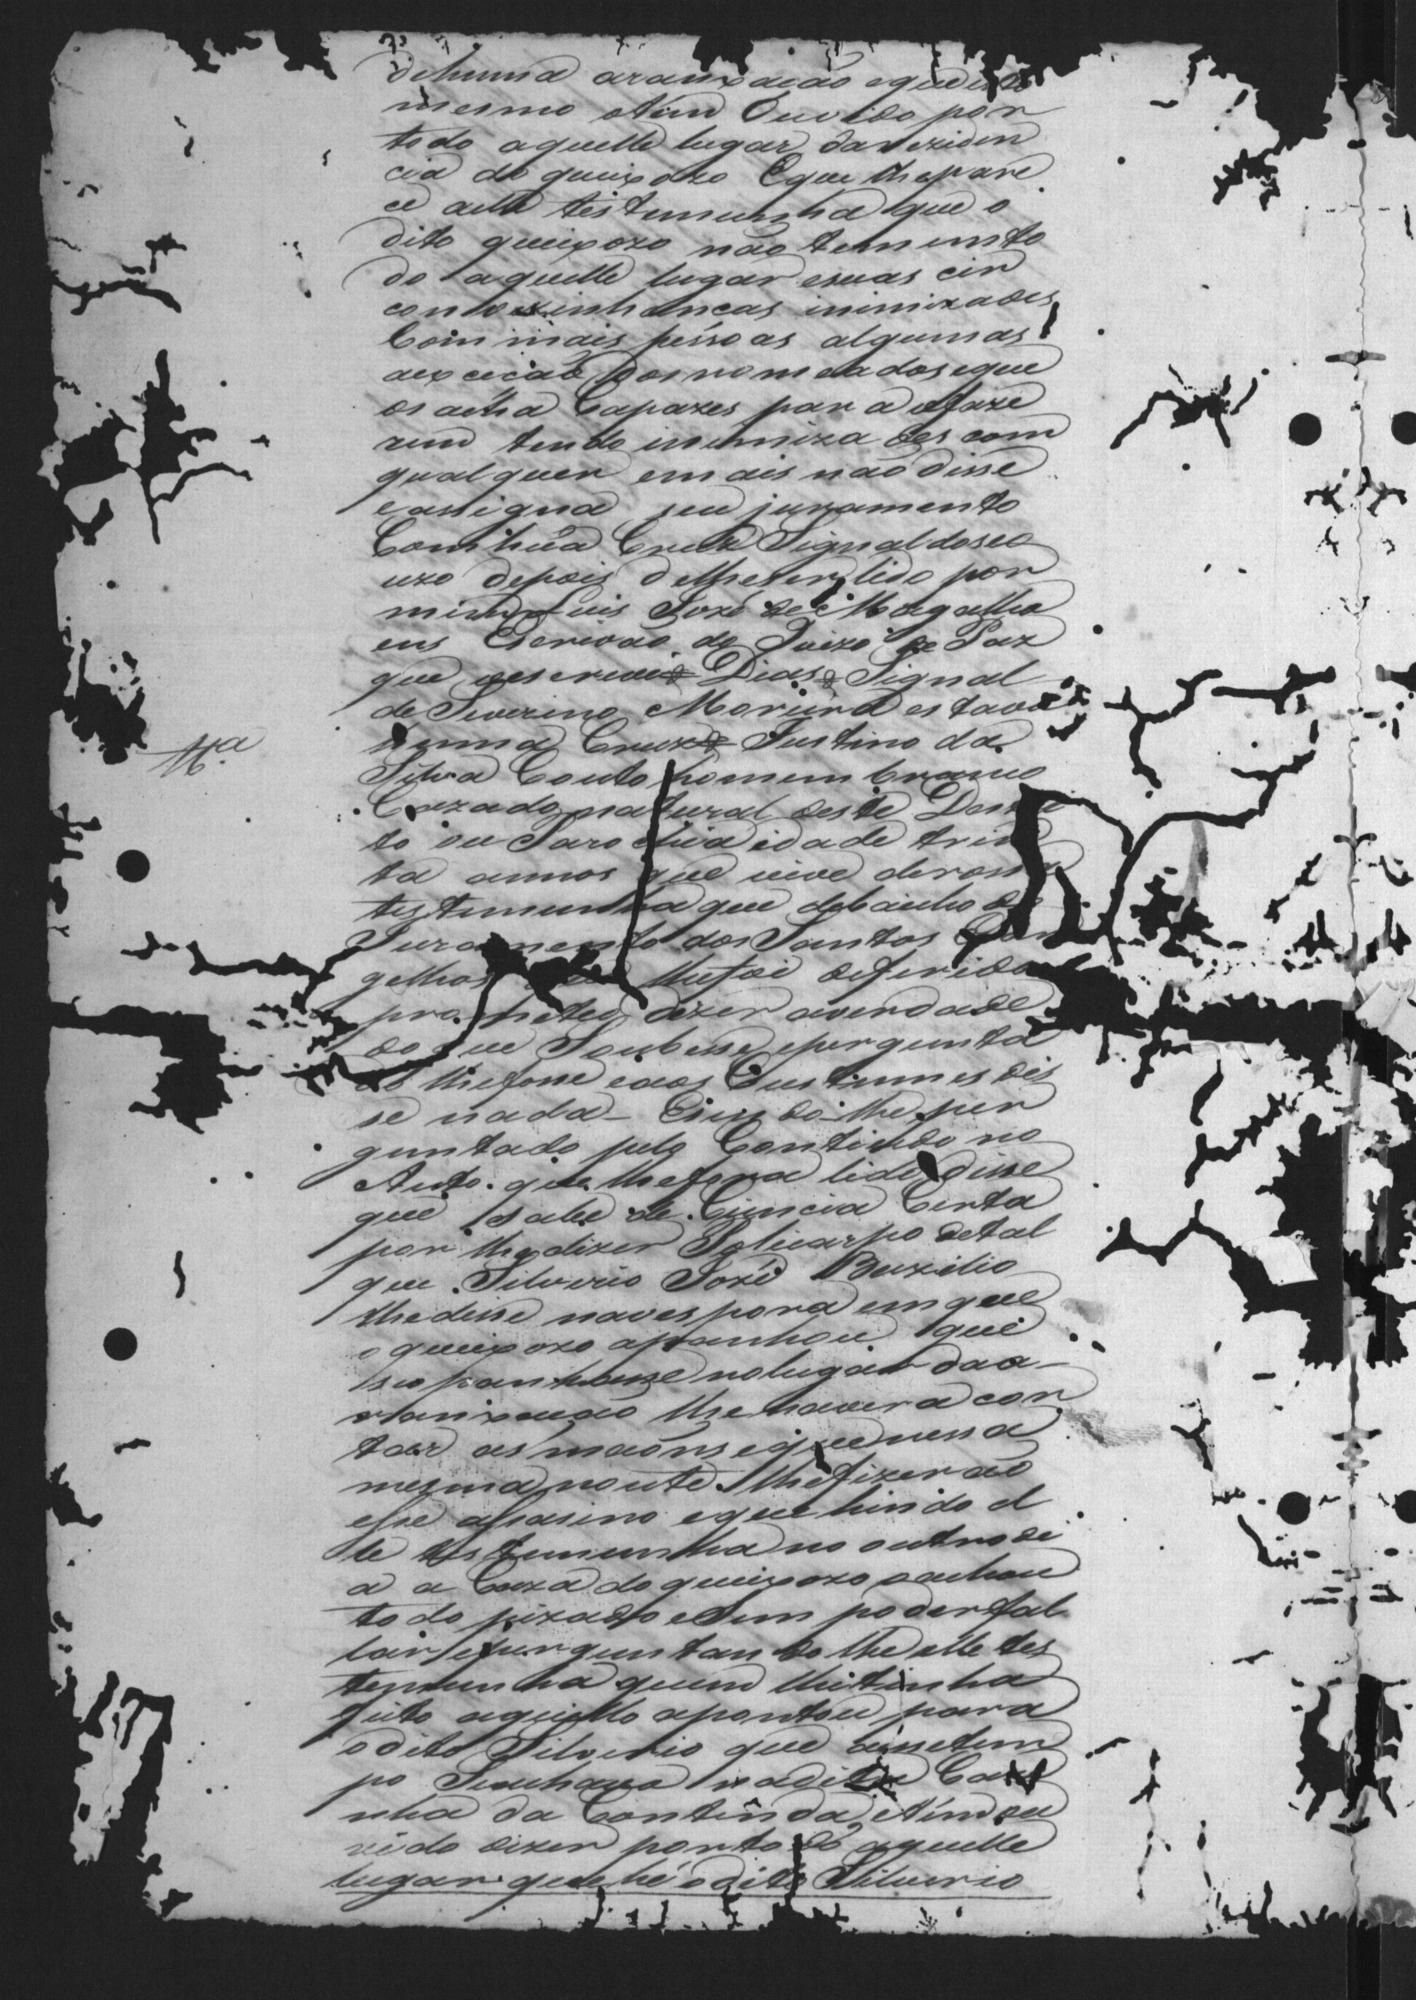 dehuma aranxação eque isto
mesmo atem Ouvido por
todo aquelle lugar darezidem
cia do queixozo Eque lhepare
ce aella testemunha que o
dito queixozo não tem emto
do aquelle lugar esuas cir
convezinhancas inimizades
Com mais péssoas algumas
aexceicão dos nomeados eque
os acha Capazes para ofaze
rem tendo inimizades com
qualquer emais não disse
eassigna seu juramento
Com húa Cruz Signal doseo
uzo depois delheser lido por
mim Luis Jozé de Magalha
ens Escrivão do Juizo de Paz
que oescrevi Dias Signal
de Severino Moreira estava
huma Cruz Justino da
Silva Couto homem branco
Cazado natural deste Destri
to ou Parochia idade trin
ta annos que vive derossa
testemunha que debaicho do
Juramento dos Santos Evan
gelhos que lhefoi deferido
prometeo dizer averdade
do que Soubesse eperguntа
do lhefosse eaos Custumes dis
se nada Esendo lheper
guntado pelo Contiudo no
Auto que lhefora lido disse
que sabe de Ciencia Certa
por lhe dizer Policarpo detal
que Silverio Jozé Bazilio
lhedisse navespora emque
oqueixozo apanhou que
seopanhasse nolugar daa
ranxacao lhehavera cor
tar asmaons equenessa
mesma noute lhefizerão
esse asasino eque hindo el
le testemunha no outrodi
a a Caza do queixozo oachou
todo pizado eSem poder fal
lar eperguntandolhe elle tes
temunha quem lhetinha
feito aquillo apontou para
odito Silverio que nessetem
po Seachava nadita Cazi
nha da Contenda, etem ou
vido dizer portodo aquelle
lugar quehé odito Silverio
Ma